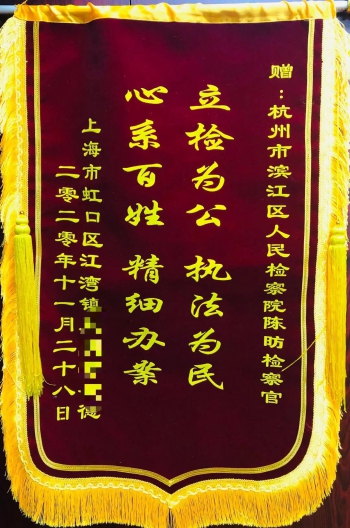 赠：杭州市滨江区人民检察院陈昉检察官
立检为公 执法为民
心系百姓 精细办案
上海市虹口区江湾镇德
二零二零年十一月二十八日